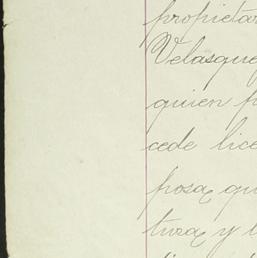 propietar
Velasque
quien p
cede lice
posa qu
tura y l